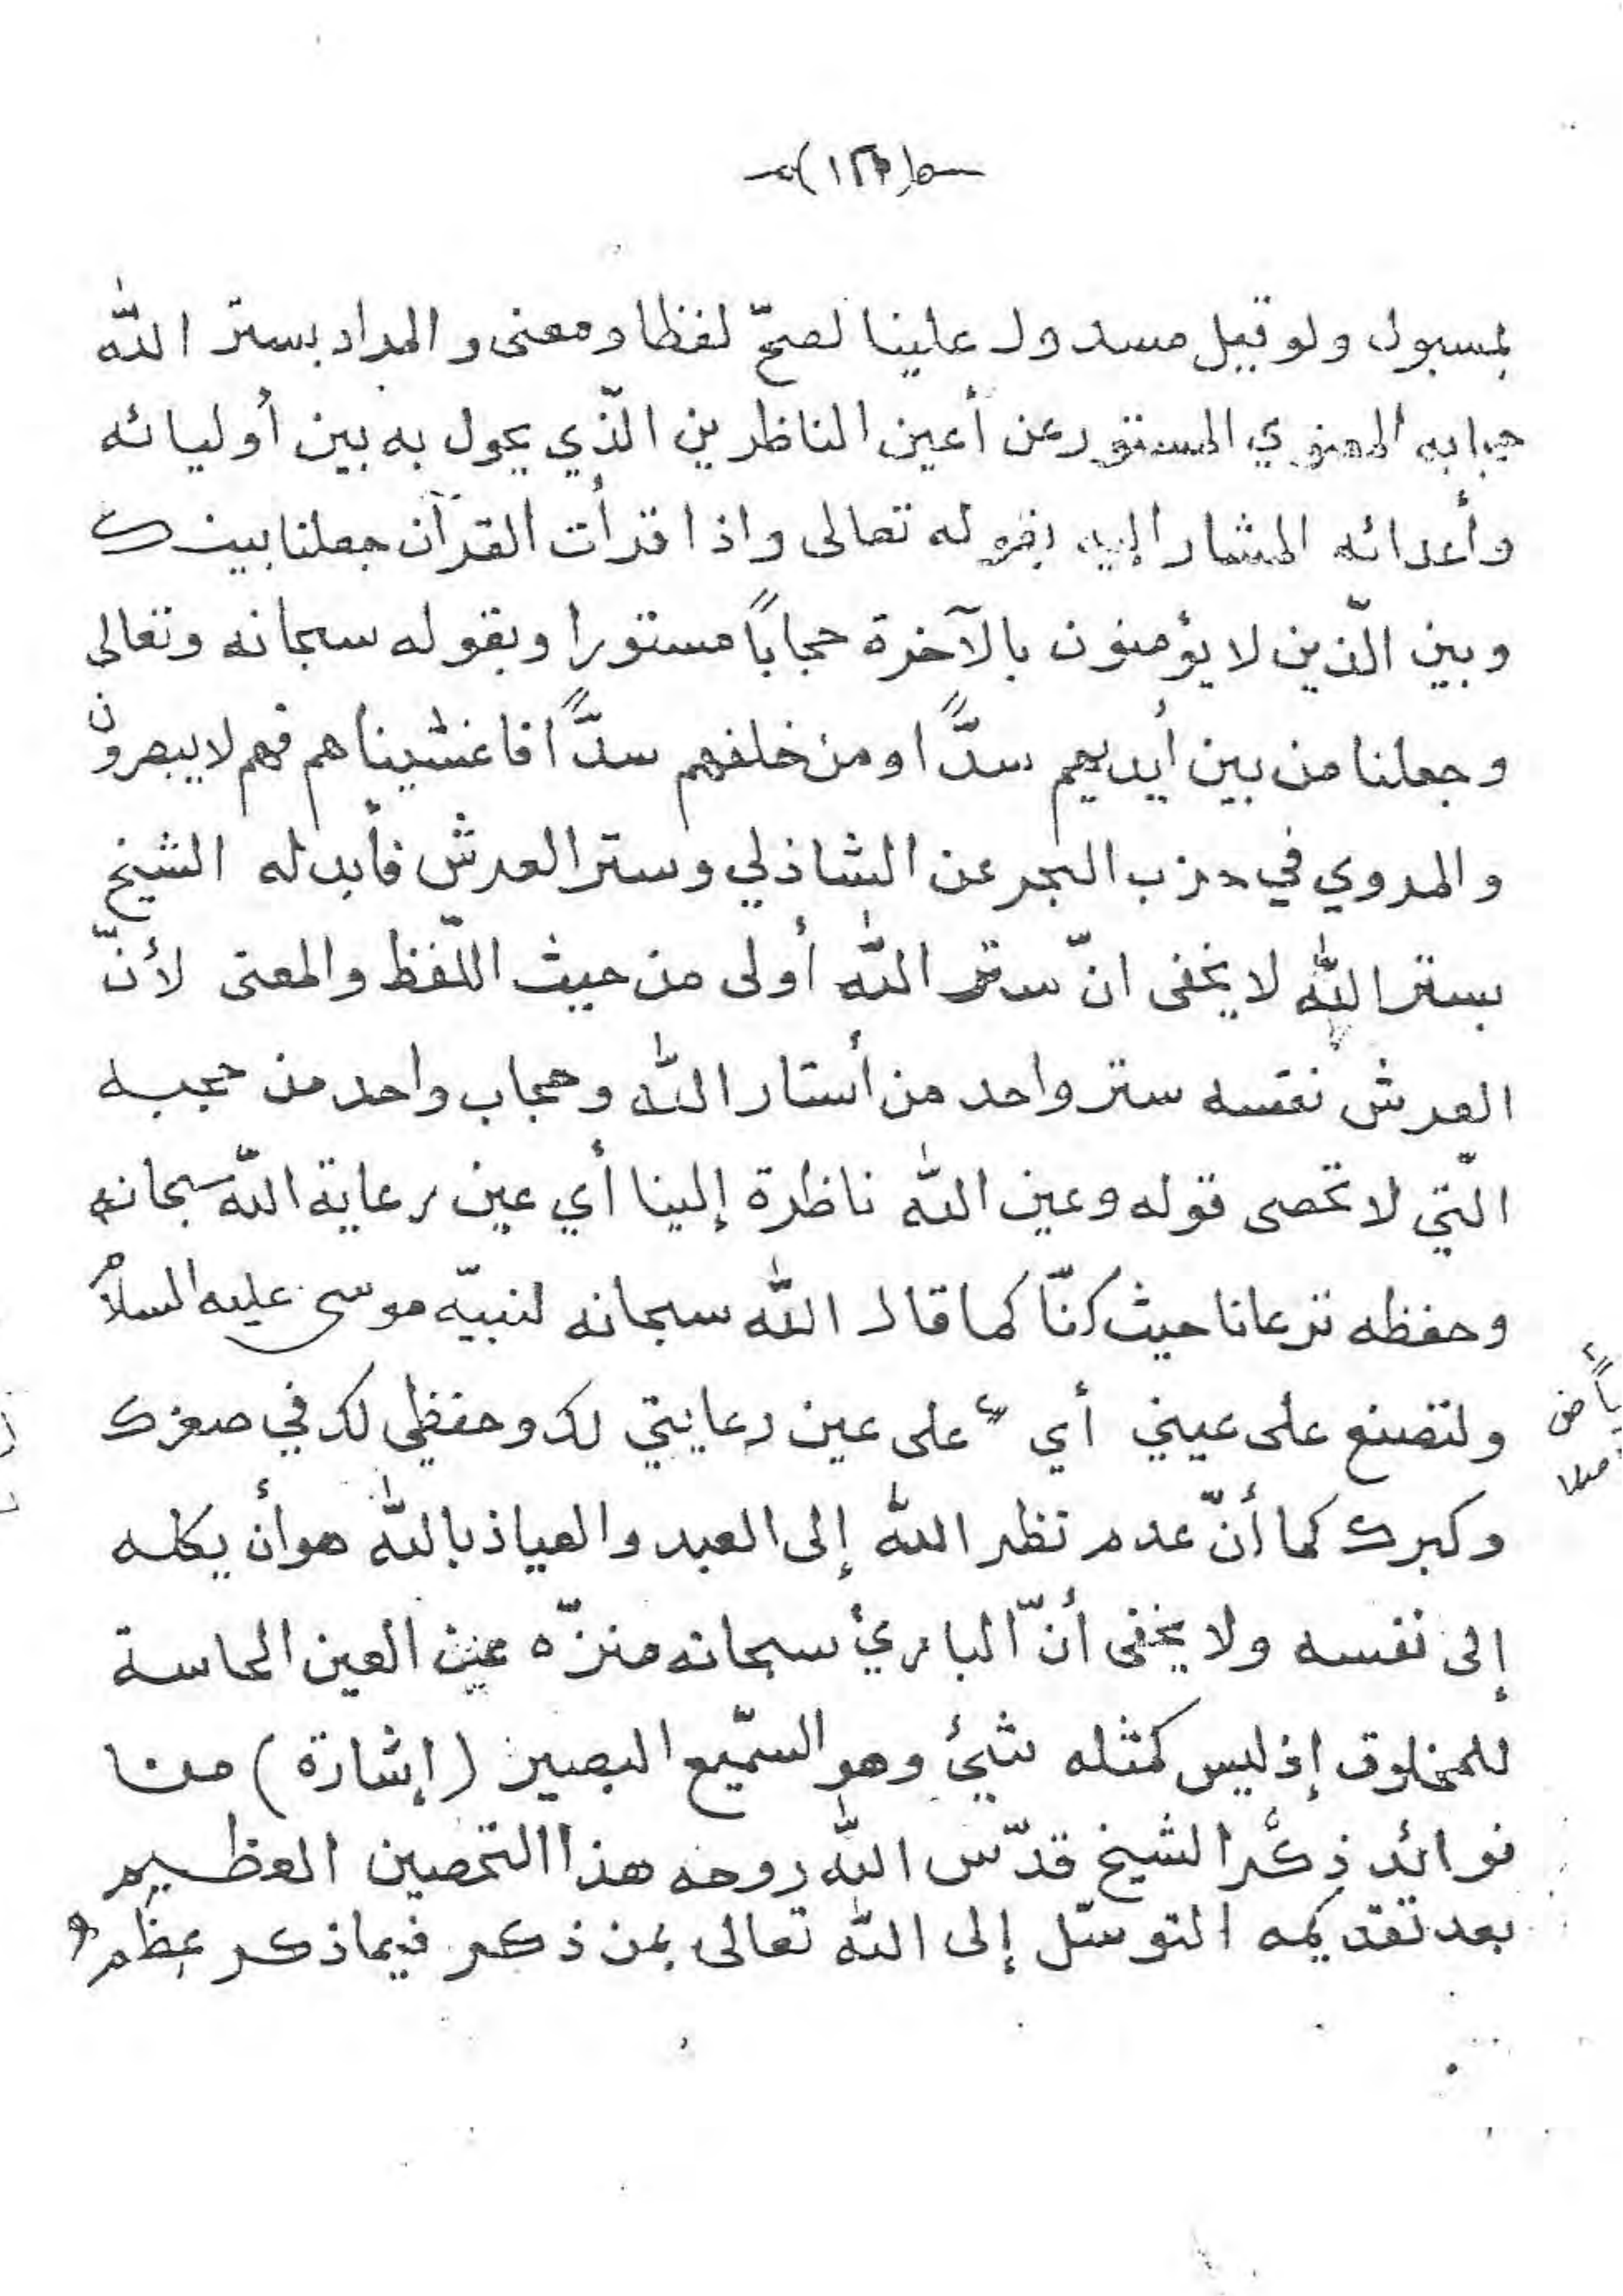 لمسبول ولو قيل مسدول علينا لصحّ لفظا ومعنى والمراد بستر الله
حجابه المعنوي المستور عن أعين الناظرين الّذي يحول به بين أوليائه
وأعدائه المشار إليه بقوله تعالى واذا قرأت القرآن جعلنا بينك
وبين الّذين لا يؤمنون بالآخرة حجاباً مستورا وبقوله سبحانه وتعالى
وجعلنا من بين أيديهم سدًّا ومن خلفهم سدًّا فاغشيناهم فهم لا يبصرون
والمروي في حزب البحر عن الشاذلي وستر العرش فأبدله الشيخ
بستر الله لا يخفى انّ ستر الله أولى من حيث اللّفظ والمعنى لأنّ
العرش نفسه ستر واحد من أستار الله وحجاب واحد من حجبه
الّتي لا تحصى قوله وعين الله ناظرة إلينا أي عين رعاية اللّه سبحانه
وحفظه ترعانا حيث كنّا كما قال الله سبحانه لنبيّه موسى عليه السلام
ولتصنع على عيني أي على عين رعايتي لك وحفظي لك في صغرك
وكبرك كما أنّ عدم نظر الله إلى العبد والعياذ بالله هو أن يكله
إلى نفسه ولا يخفى أنّ البارئ سبحانه منزّه عن العين الحاسة
للمخلوق إذ ليس كمثله شيئ وهو السّميع البصير (إشارة) من
فوائد ذكر الشيخ قدّس اللّه روحه هذا التحصين العظيم
بعد تقديمه التوسّل إلى الله تعالى بمن ذكر فيما ذكر عظم